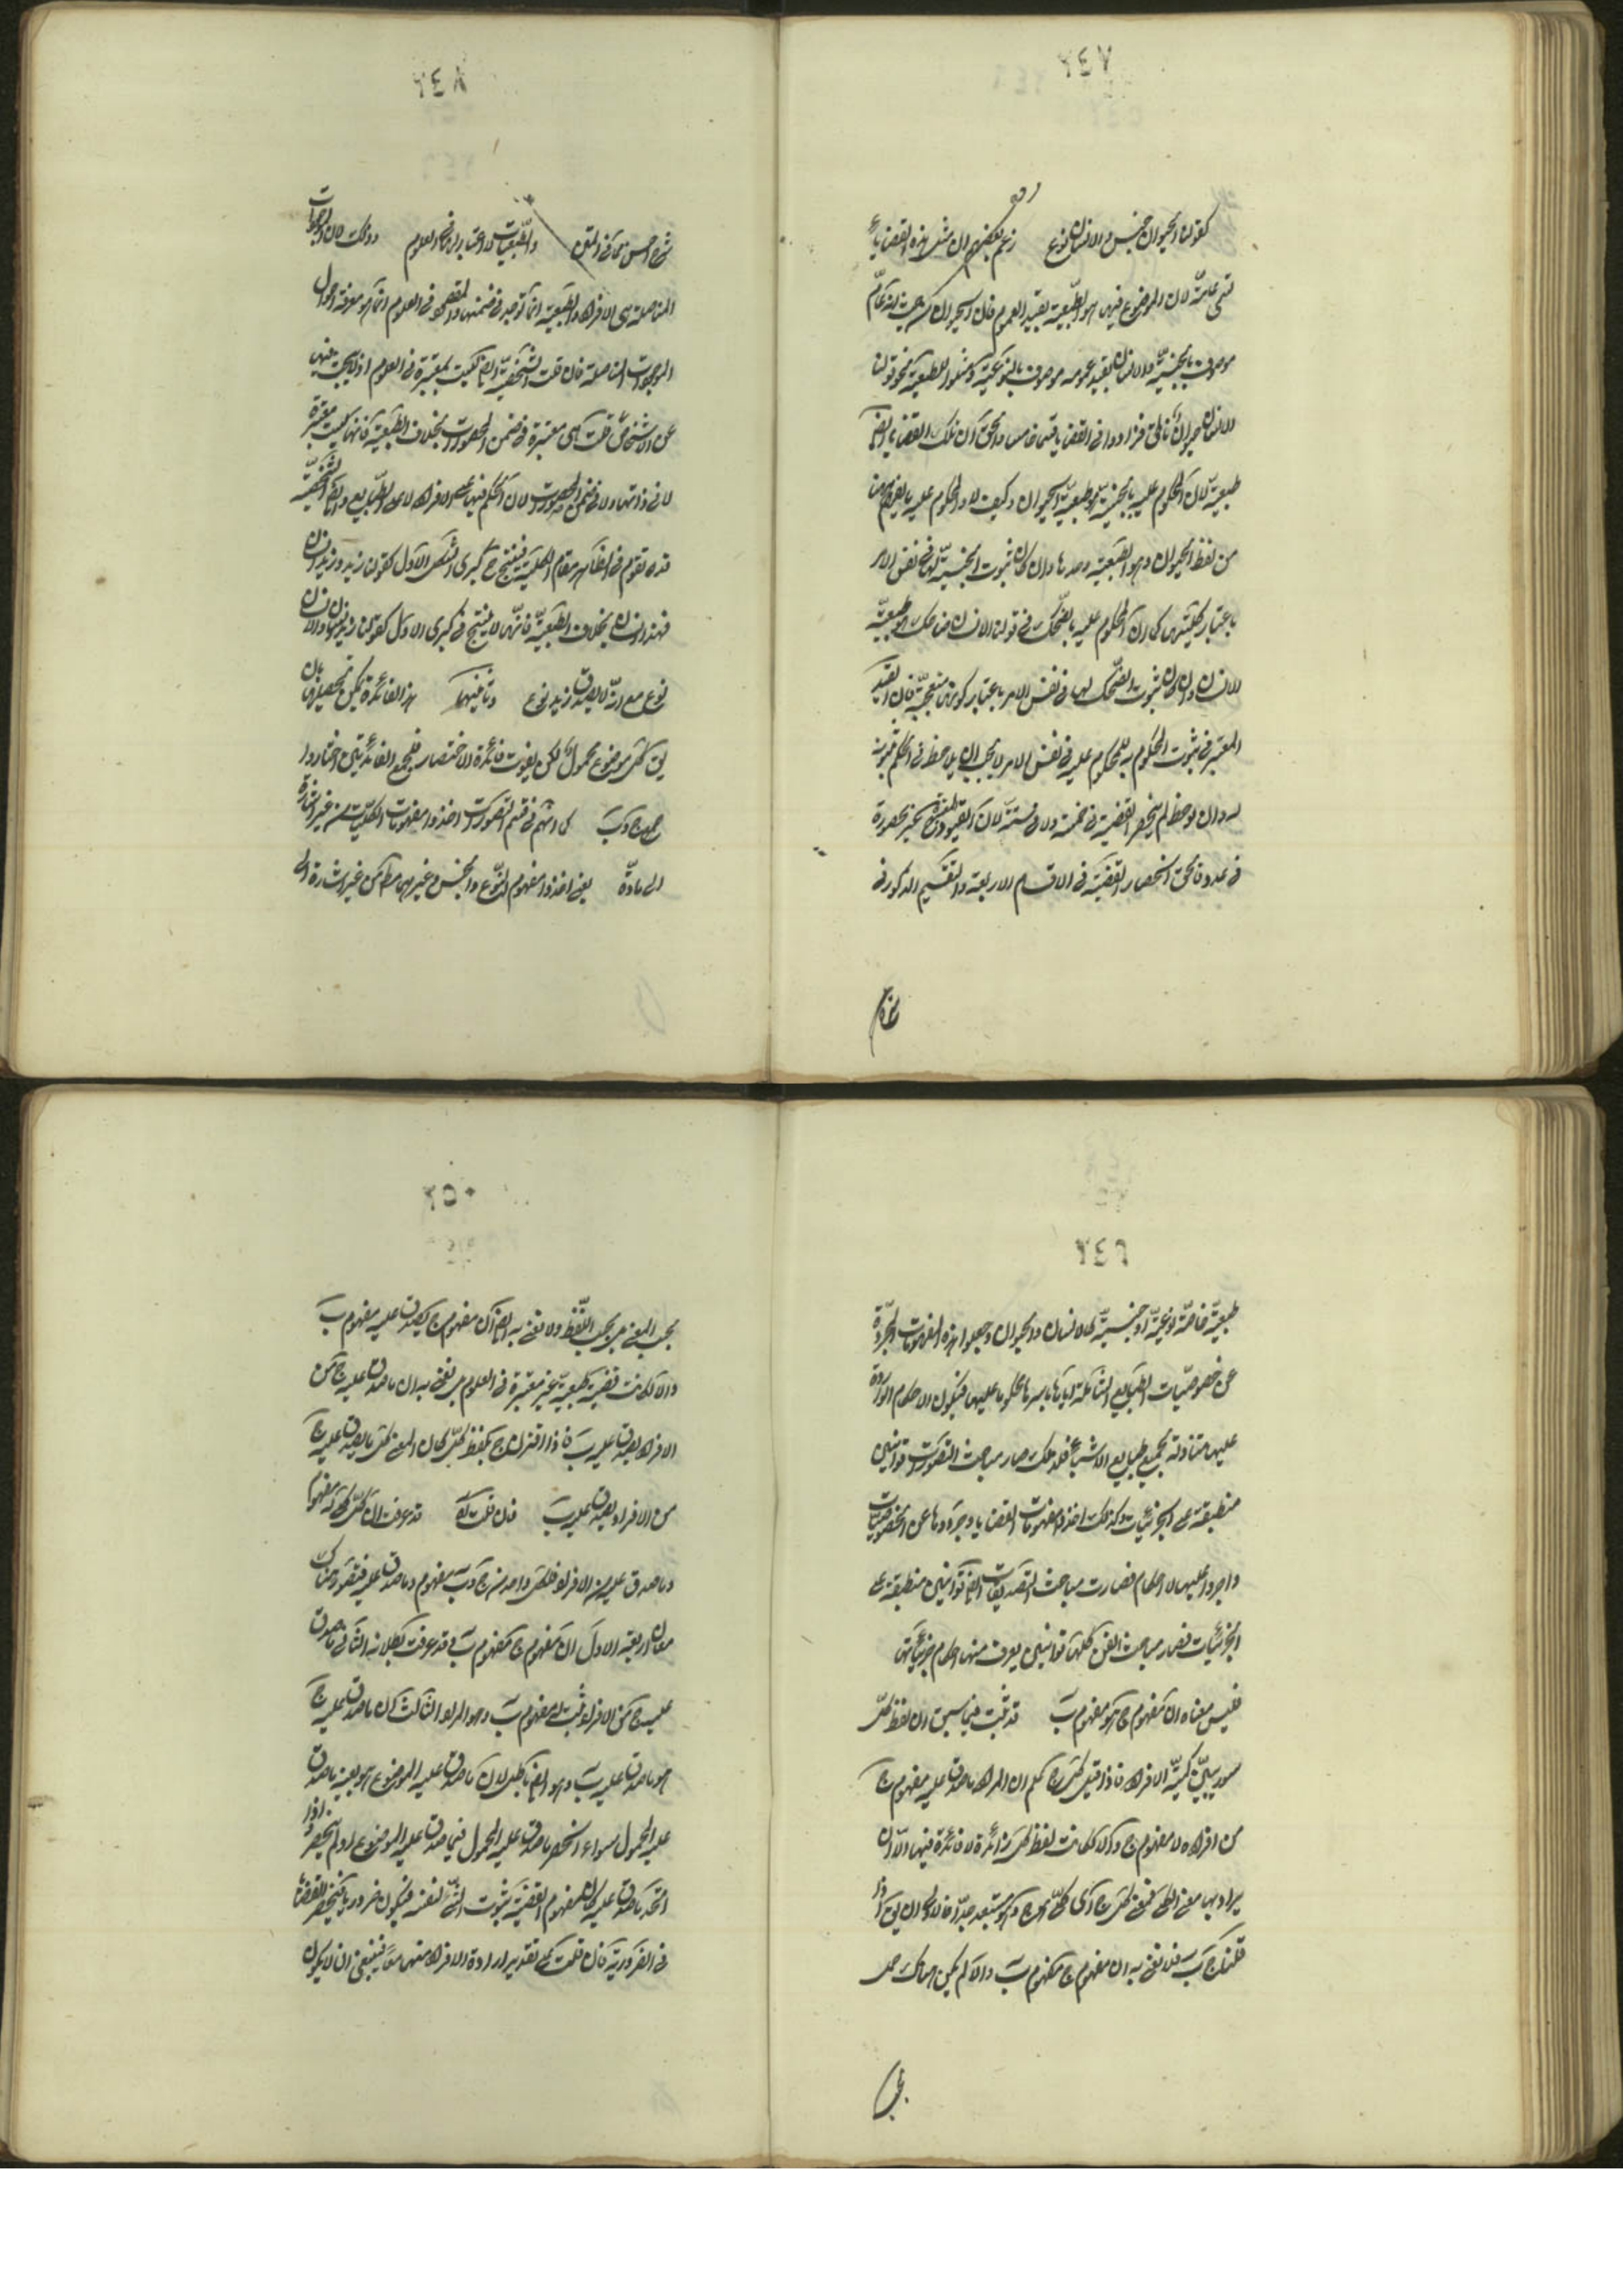 ٢٤٧
كقولنا الحيوان جنس والانسان نوع زعم بعضهم ان مثل هذه القضايا
تسمى عامة لان الموضوع فيها هو الطبيعة بقيد العموم فان الحيوان من حيث انه عام
موصوف بالجنسية والانسان بقيد عمومه موصوف بالنوعية ومثلوا للطبيعية بنحو قولنا
الانسان حيوان ناطق فزادوا في القضايا قسما خامسا والحق ان تلك القضايا ايضا
طبيعية لان المحكوم عليه بالجنسية طبيعة الحيوان وكيف لا والمحكوم عليه ما يفهم
من لفظ الحيوان وهو الطبيعة وحدها وان كان ثبوت الجنسية لها في نفس الامر
باعتبار كليتها كما ان المحكوم عليه بالضحك في قولنا الانسان ضاحك طبيعة
الانسان وان كان ثبوت الضحك لها في نفس الامر باعتبار كونها متعجبة فان القيد
المعتبر في ثبوت المحكوم به للمحكوم عليه في نفس الامر لا يجب ان يلاحظ في الحكم بثبوته
له وان لوحظ لم ينحصر القضية في خمسة ولا في ستة لان القيود غير منحصرة
في عدد فالحق انحصار القضية في الاقسام الاربعة والتقسيم المذكور في
٢٤٨
شرح احسن مما في المتن والطبيعيات لا اعتبار لها في العلوم وذلك لان الموجودات
المتاصلة هي الافراد والطبيعة انما توجد في ضمنها والمقصود في العلوم انما هو معرفة احوال
الموجودات المتاصلة فان قلت الشخصية ايضا ليست بمعتبرة في العلوم اذ لا يبحث فيها
عن الاشخاص قلت هي معتبرة في ضمن المحصورات بخلاف الطبيعية فانها ليست معتبرة
لا في ذاتها ولا في ضمن المحصورات لان الحكم فيها على الافراد لا على الطبايع وايضا الشخصية
قد تقوم في الظاهر مقام الكلية فينتج في كبرى الشكل الاول كقولنا هذا زيد وزيد انسان
فهذا انسان بخلاف الطبيعية فانها لا ينتج في كبرى الاول كقولنا زيد انسان والانسان
نوع مع انه لا يصدق زيد نوع وثانيهما هذا الفائدة يمكن تحصيلها بان
يق كل موضوع محمول لكن يفوت فائدة الاختصار فلجمع الفائدتين اختاروا
ج وب كما انهم في قسم التصورات اخذوا مفهومات الكليات من غير اشارة
الى مادة يعني اخذوا مفهوم النوع والجنس وغيرهما من غير اشارة الى
٢٤٩
طبيعة خاصة نوعية او جنسية كالانسان والحيوان وجعلوا هذه المفهومات المجردة
عن خصوصيات الطبايع الشاملة اياها باسرها محكوما عليها فيكون الاحكام الواردة
عليها متناولة لجميع طبايع الاشياء فلذلك صار مباحث التصورات قوانين
منطبقة على الجزئيات وكذلك اخذوا مفهومات القضايا وجردوها عن الخصوصيات
واجروا عليها الاحكام فصارت مباحث التصديقات ايضا قوانين منطبقة على
الجزئيات فصار مباحث الفن كلها قوانين يعرف منها احكام جزئياتها
فليس معناه ان مفهوم ج هو مفهوم ب قد ثبت فيما سبق ان لفظ كل
سور يبين كمية الافراد فاذا قيل كل ج علم ان المراد ما صدق عليه مفهوم ج
من افراده لا مفهوم ج والا لكانت لفظ كل زائدة لا فائدة فيها والا ان
يراد بها معنى الكلي فمعنى كل ج اي كلي هو ج وهو مستبعد جدا فالاولى ان يق اذا
قلنا ج ب فلا نعني به ان مفهوم ج مفهوم ب والا لم يكن هناك حمل
٢٥٠
بحسب المعنى بل بحسب اللفظ ولا نعني به ايضا ان مفهوم ج يصدق عليه مفهوم ب
والا لكانت قضية طبيعية غير معتبرة في العلوم بل نعني به ان ما صدق عليه ج من
الافراد يصدق عليه ب فاذا اقترن ج بلفظ كل كان المعنى كل ما يصدق عليه ج
من الافراد يصدق عليه ب فان قلت قد عرفت ان لكل مفهوما
وما صدق عليه من الافراد فلكل واحد من ج وب مفهوم وما صدق عليه فيتصور هناك
معان اربعة الاول ان مفهوم ج مفهوم ب وقد عرفت بطلانه الثاني ما صدق
عليه ج من الافراد ثبت له مفهوم ب وهو المراد الثالث ان ما صدق عليه ج
هو ما صدق عليه ب وهو ايضا باطل لان ما صدق عليه الموضوع هو بعينه ما صدق
عليه المحمول سواء انحصر ما صدق عليه المحمول فيما صدق عليه الموضوع او لم ينحصر واذا
اتحد ما صدق عليه كان مفهوم القضية ثبوت الشيء لنفسه فيكون ضروريا فينحصر القضايا
في الضرورية فان قلت على تقدير ارادة الافراد منهما معا ينبغي ان لا يكون